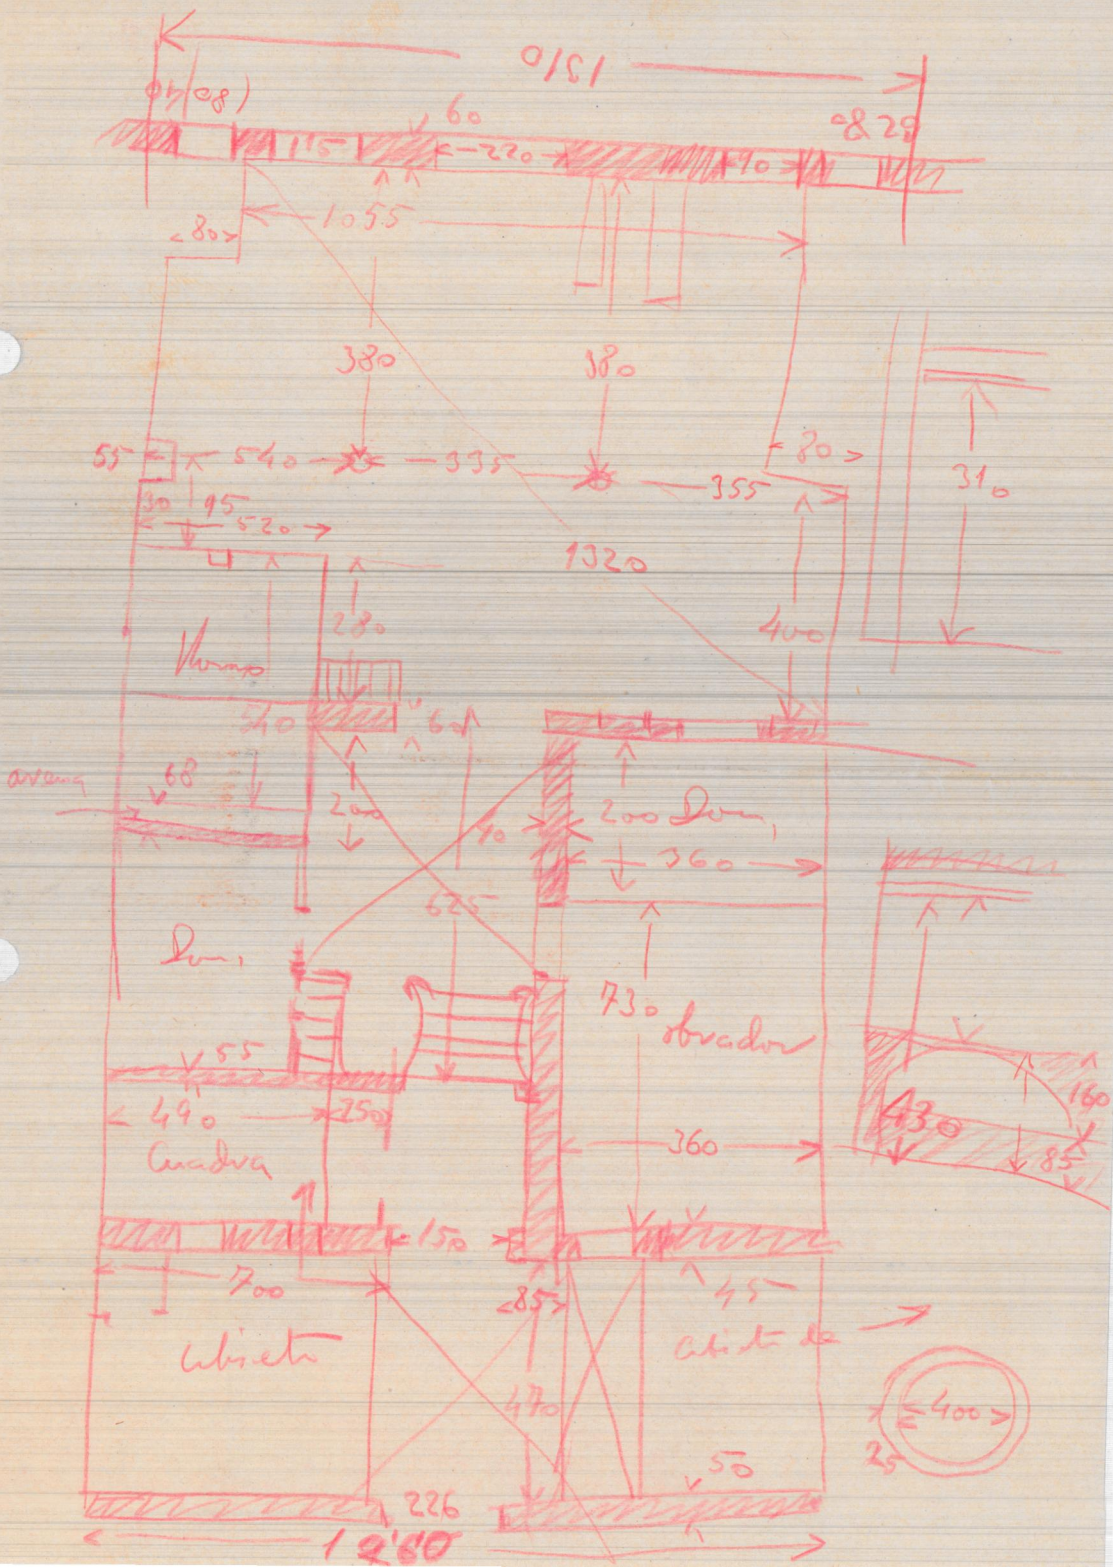 1510
60
115
220
90
1055
80
380
380
55
540
335
80
355
310
30
95
520
1320
280
400
Horno
540
60
68
200
90
200 Dom,
360
625
Dom,
730
obrador
55
490
250
Cuadra
360
430
160
85
150
700
85
45
Cubierto
470
400
25
50
226
12'60